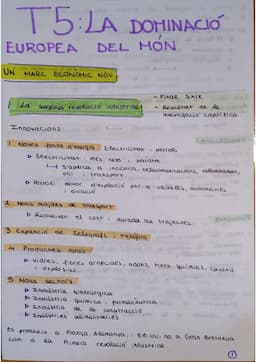 T5: LA DOMINACIÓ
EUROPEA DEL MÓN
UN MARC ECONÒMIC NOU
1. La segona revolució industrial
- Finals s.XIX
- Resultat de la
investigació científica
Innovacions:
1. Noves fonts d'energia: Electricitat i petroli
Electricitat: més neta i barata
s'aplica a indústria, telecomunicacions, enllumenat,
oci i transport
Petroli: motor d'explosió per a vaixells, automòbils
i aviació
2. Nous mitjans de transport
Redueixen el cost i durada de trajectes
3. Expansió de telègrafs i telèfons
4. Productes nous
fibres artificials, adobs, cautxú
i explosius
5. Nous sectors
Indústria siderúrgica
Indústria química i farmacèutica
Indústria de la construcció
Indústries alimentàries
Es produeix a França, Alemanya, EE.UU. no a Gran Bretanya
com a la Primera revolució industrial.
1